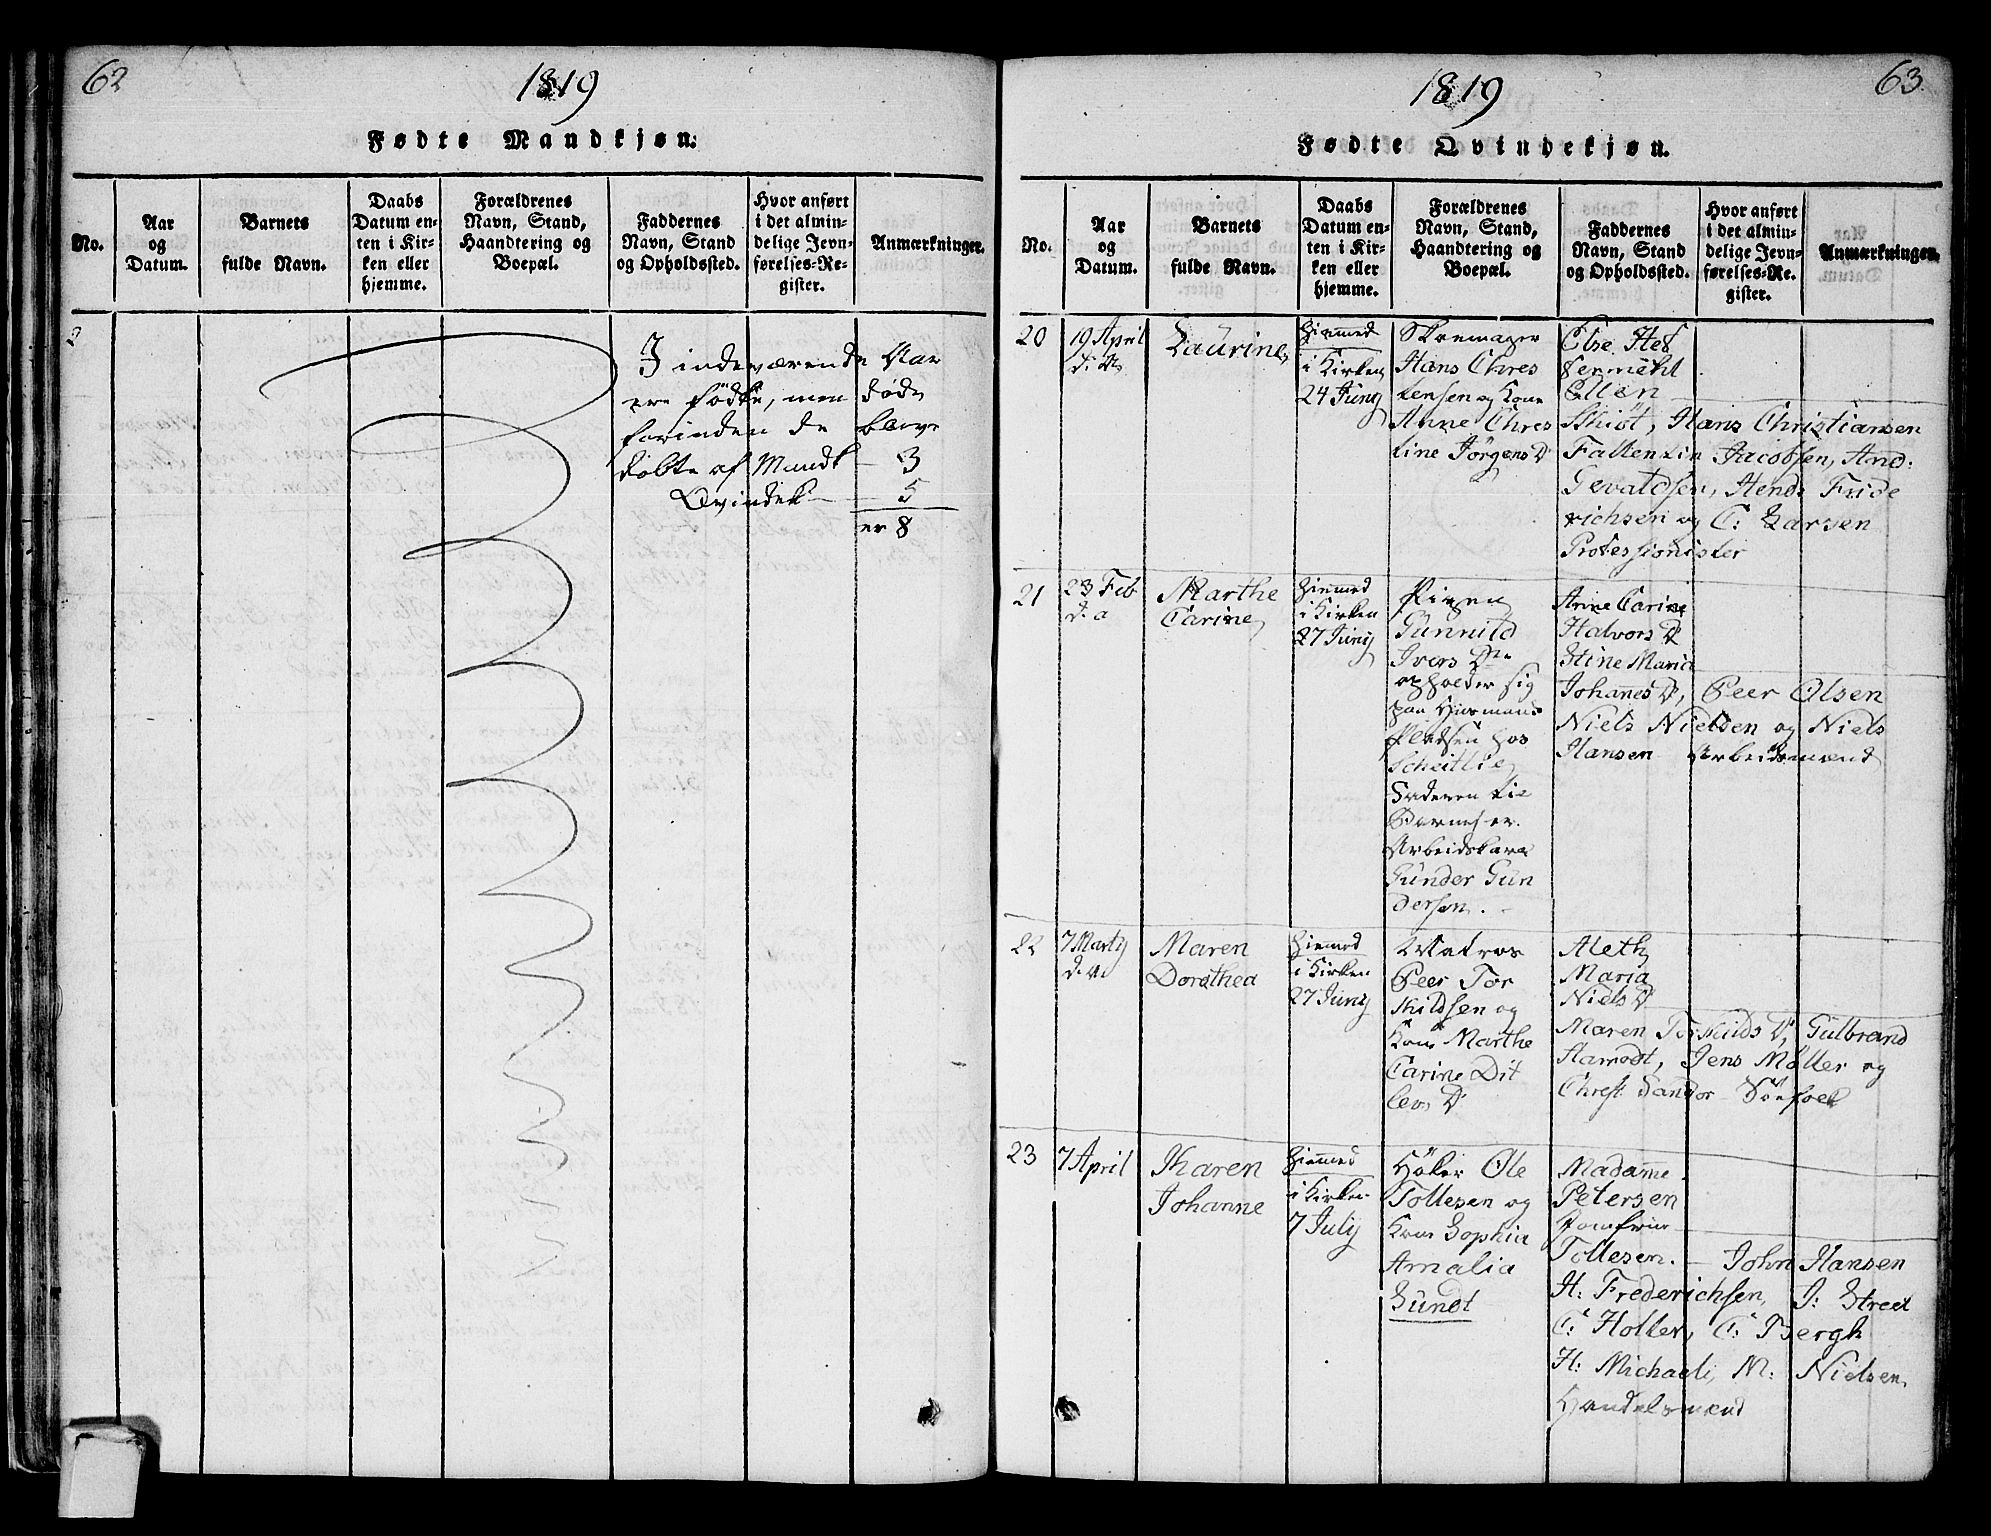 62
1819
Fødte Mandkjøn:
No.
Aar
og
Datum.
Barnets
fulde Navn.
Daabs
Datum en-
ten i Kir-
ken eller
hjemme.
Forældrenes
Navn, Stand,
Haandtering og
Boepæl.
Faddernes
Navn, Stand
og Opholdssted.
Hvor anført
i det almin-
delige Jevn-
førelses-Re-
gister.
Anmærkninger.
I indeværende Aar
ere fødte, men døde
forinden de bleve
døbte af Mandk – 3
Qvindek – 5
er 8
63.
1819
Fødte Qvindekjøn.
No.
Aar
og
Datum.
Barnets
fulde Navn.
Daabs
Datum en-
ten i Kir-
ken eller
hjemme.
Forældrenes
Navn, Stand,
Haandtering og
Boepæl.
Faddernes
Navn, Stand
og Opholdssted.
Hvor anført
i det almin-
delige Jevn-
førelses-Re-
gister.
Anmærkninger.
20
19 April
d: A
Laurine
Hiemmed
i Kirken
24 Junij
Skoemager
Hans Chres
tensen og Kone
Anne Chres
tine Jörgens D
Else
Ellen
Skiöt, Hans Christiansen
Falkensten Jacobsen, And:
Gevaldsen, Hends Fride
richsen og C: Larsen
Professionister
21
23 Feb
d. a
Marthe
Carine
Hiemmed
i Kirken
27 Junij
Pigen
Gunnild
Ivers Dtr
opholder sig
paa Huusmands
Pladsen hos
Scheitlie
Faderen til
Barnet er
Arbeidskarl
Gunder Gun
dersen.
Anne Carine
Halvors D
Stine Maria
Johannes D, Peer Olsen
Niels Nielsen og Niels
Hansen Arbeidsmænd
22
7 Martij
d. A
Maren
Dorothea
Hiemmed
i Kirken
27 Junij
Matros
Peer Tor
kildsen og
Kone Marthe
Carine Dit
levs D
Aleth
Maria
Niels D
Maren Torkilds D, Gulbrand
Aamodt, Jens Møller og
Chrest Sandor Söefolk
23
7 April
Karen
Johanne
Hiemmed
i Kirken
7 Julij
Höker Ole
Tollesen og
Kone Sophia
Amalia
Sundt
Madame
Petersen
Jomfrue
Tollesen. – John Hansen
H: Frederichsen, J: Street
C: Holter, C: Bergh
H: Michaeli, M: Nielsen
Handelsmænd